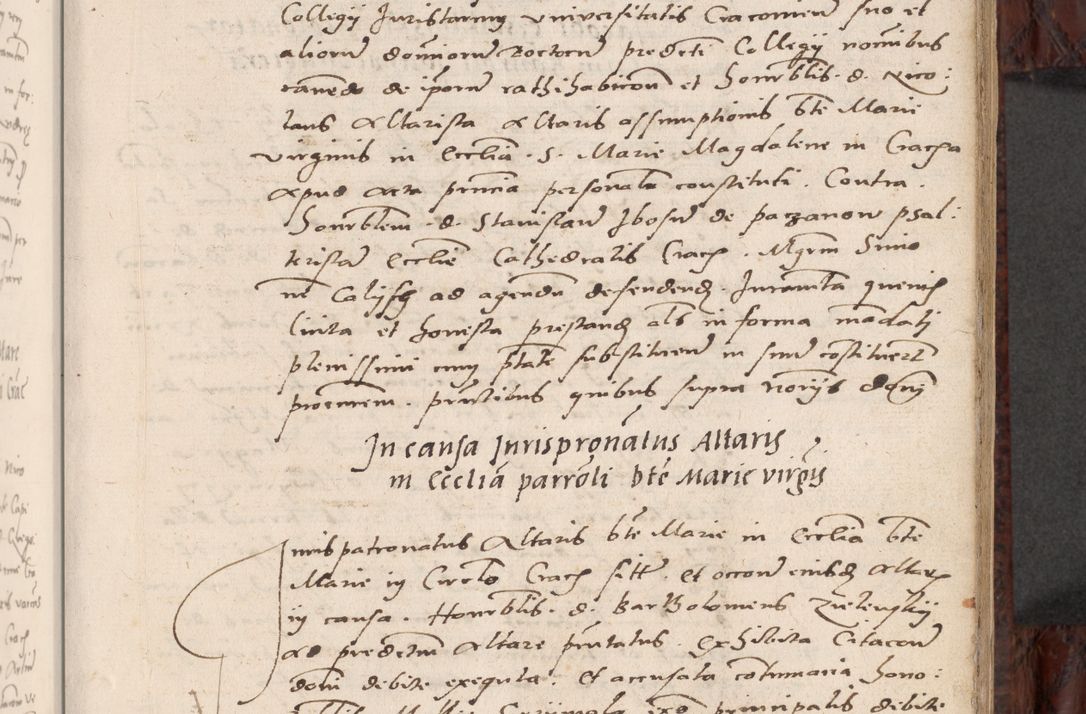 Collegij Juristarum universitatis Cracovien suo et
aliorum dominorum doctorum predicti Collegij nominibus
cavendo de ipsorum rathihabicion et honorabilis d. Nico:
laus Altarista Altaris assumptionis bte Marie
virginis in Ecclia S. Marie Magdalene in Crac
apud acta pncia personalr constituti. Contra
honorblem d. Stanislaum de paczanow psal:
teristam Ecclie Cathedralis Crac. Mgrm Simo
nem ad agendum defendend. Juramenta quevis
licita et honesta prestand als in forma mandati
plenissimi cum ptate substituendi in sium costituerunt
procurem. Pntibus quibus supra Notarijs
In causa Jurispronatus Altaris
in Eccliá parroli bte Marie virgis
Jurispatronatus Altaris bte Marie in Ecclia bte
Marie in Circlo Crac sitte. Et occone eiusd Altaris
in causa. Honorblis. d. Bartholomeus Zielenskij
ad predictum Altare pntatus. exhibita Citacone
domi debite exequta. Et accusata contumacia hono:
principalis debite